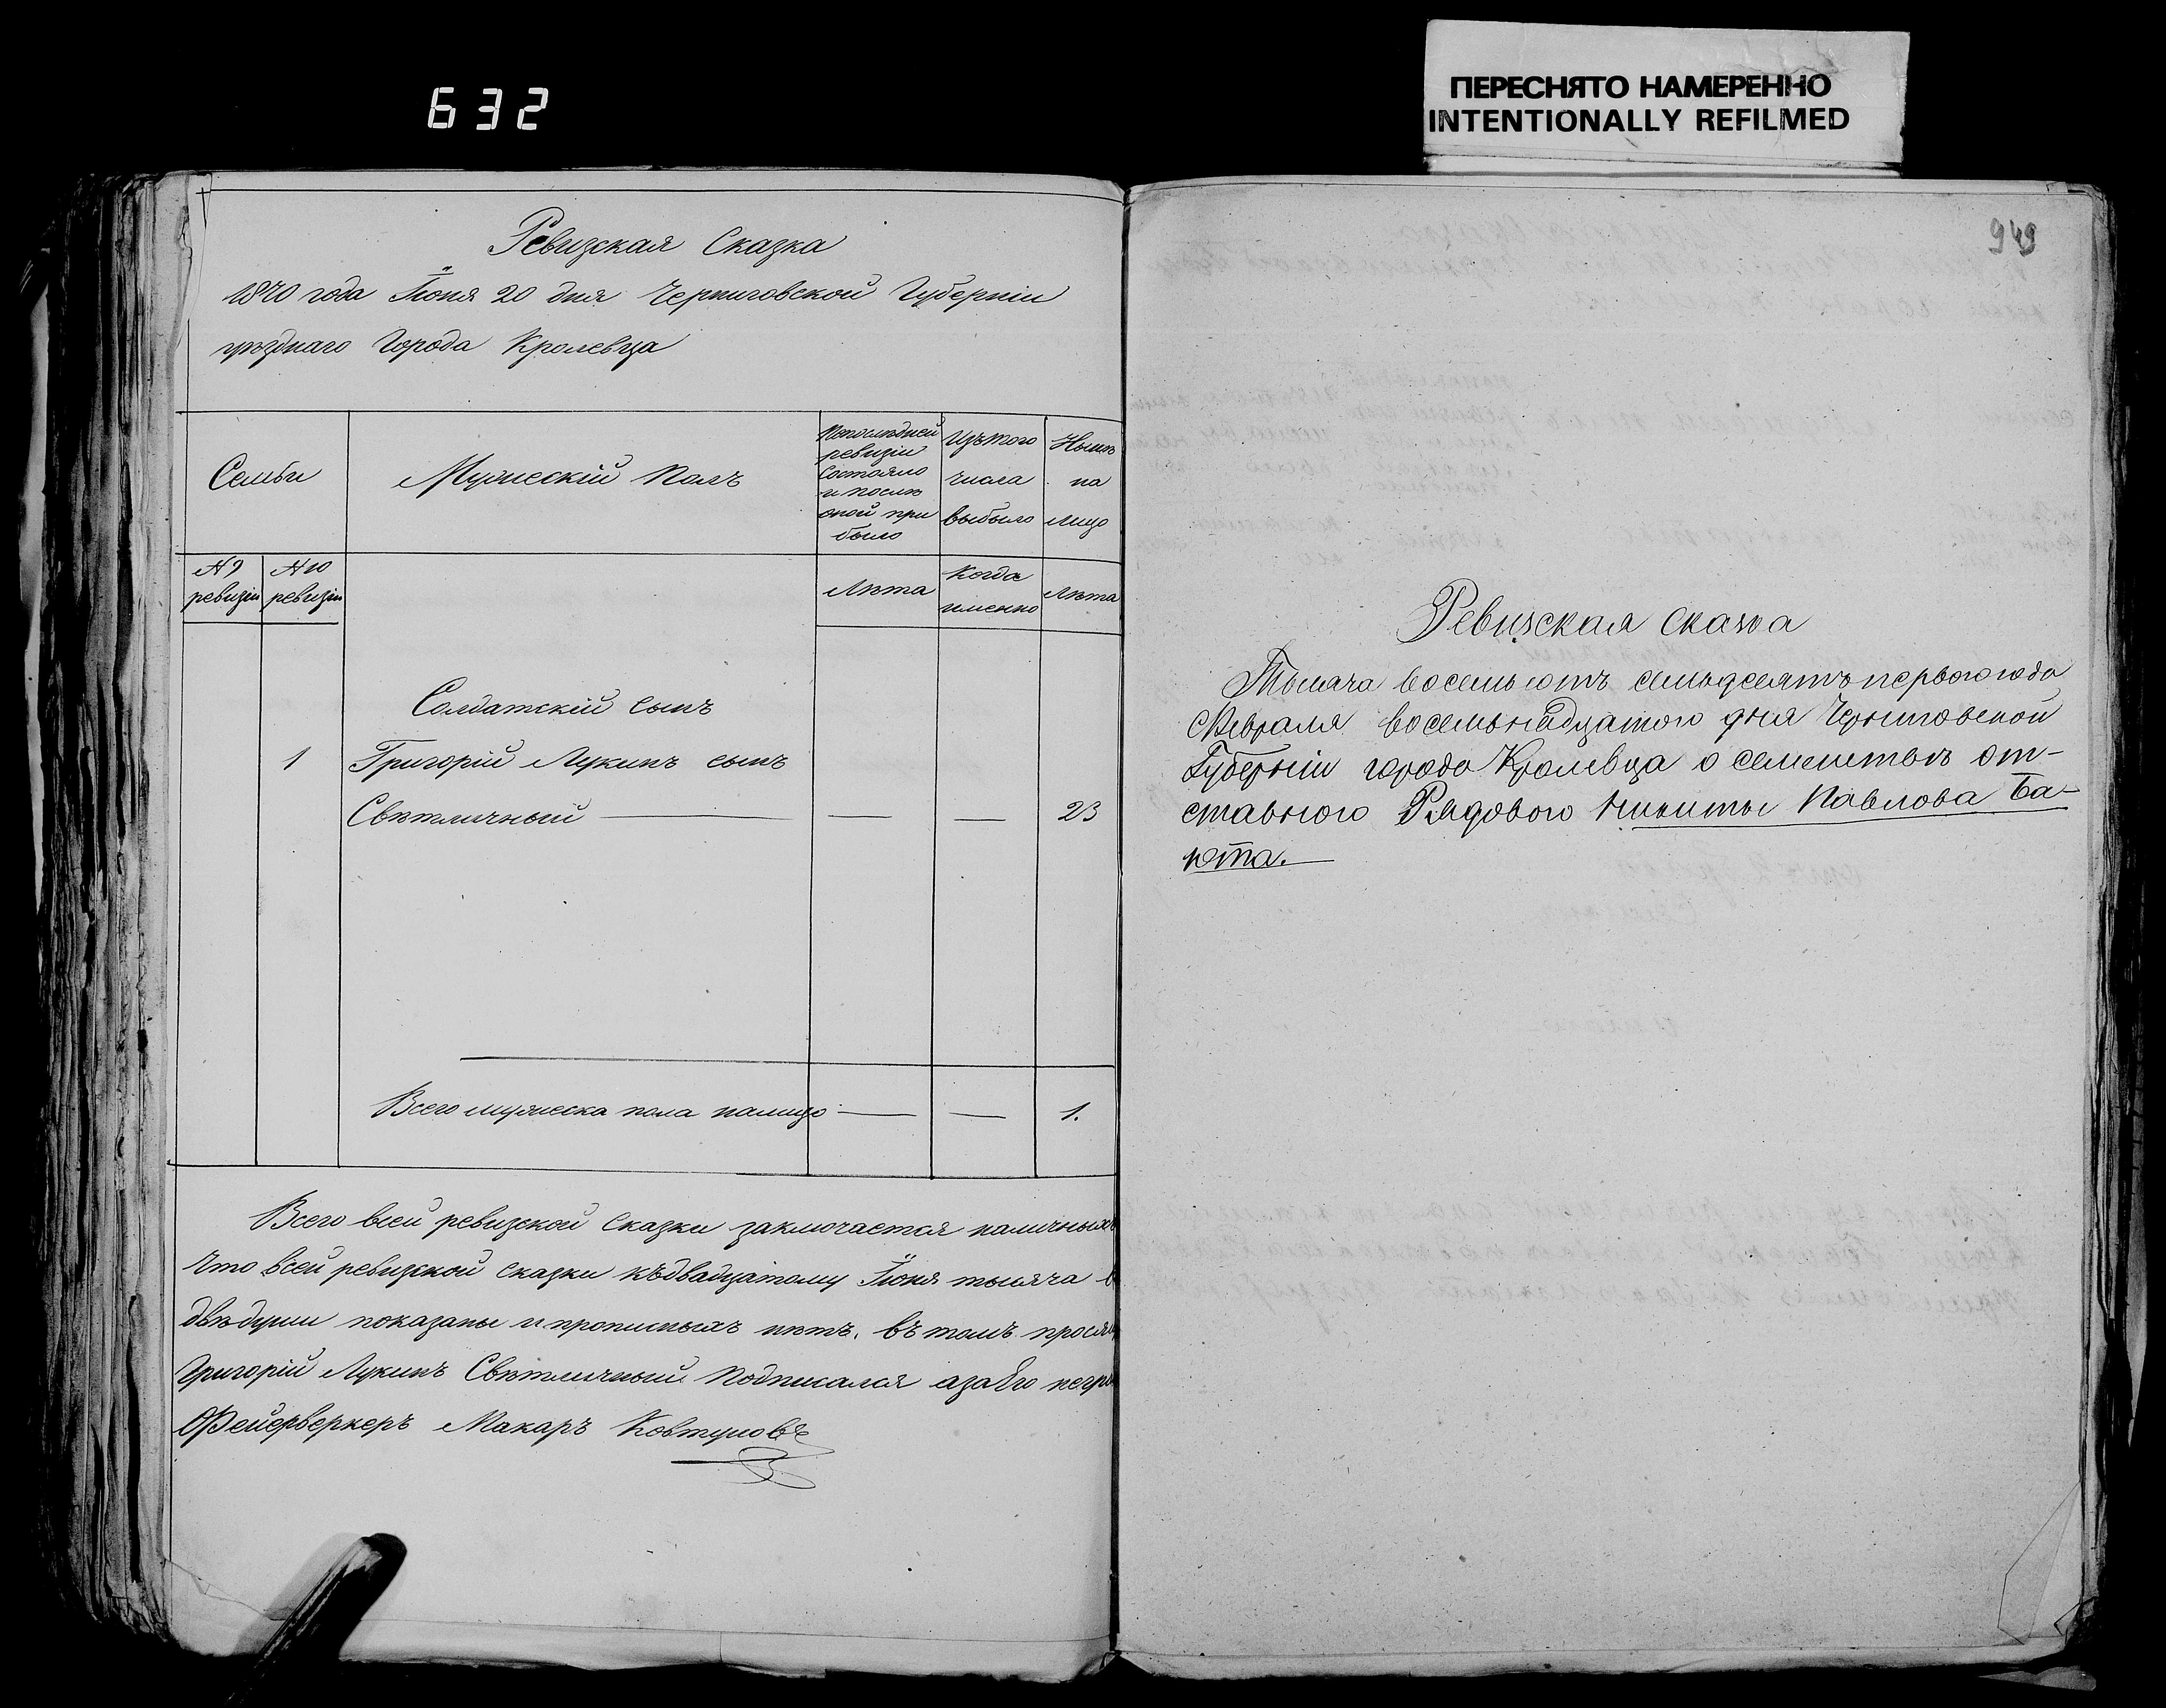 632
ПЕРЕСНЯТО НАМЕРЕННО
INTENTIONALLY REFILMED
Ревизская Сказка
1870 года Іюня 20 дня Черниговской Губерніи
уѣзднаго Города Кролевца
Семьи
Мужескій Полъ
Попослѣдней ревизіи Состояло и послѣ оной при было
Изътого числа выбыло
Нынѣ на лицо
№ 9 ревизіи
№ 10 ревизіи
Лѣта
Когда именно
Лѣта
Солдатскій сынъ
1 Григорій Лукинъ сынъ
Свѣтличный — — — 23
Всего мужеска пола налицо — — 1.
Всего всей ревизской сказки заключается наличныхъ
Что всей ревизской сказки къдвадцатому Іюня тысяча
двѣдуши показаны и прописныхъ нѣтъ. въ томъ
Григорій Лукинъ Свѣтличный Подписался азаЕго
Фейерверкеръ Макаръ Ковтуновъ
949
Ревизская сказка
Тысяча восемьсотъ семьдесятъ перваго года
Февраля восемьнадцатого дня Черниговской
Губерніи города Кролевца о семействѣ от-
ставного Рядового Никиты Павлова Ба-
юта.